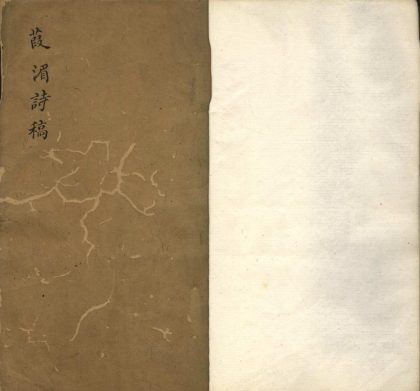 葭湄詩稿